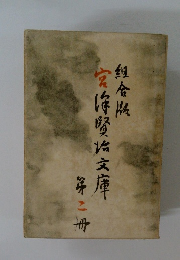 組合版
宮沢賢治文庫
第二冊